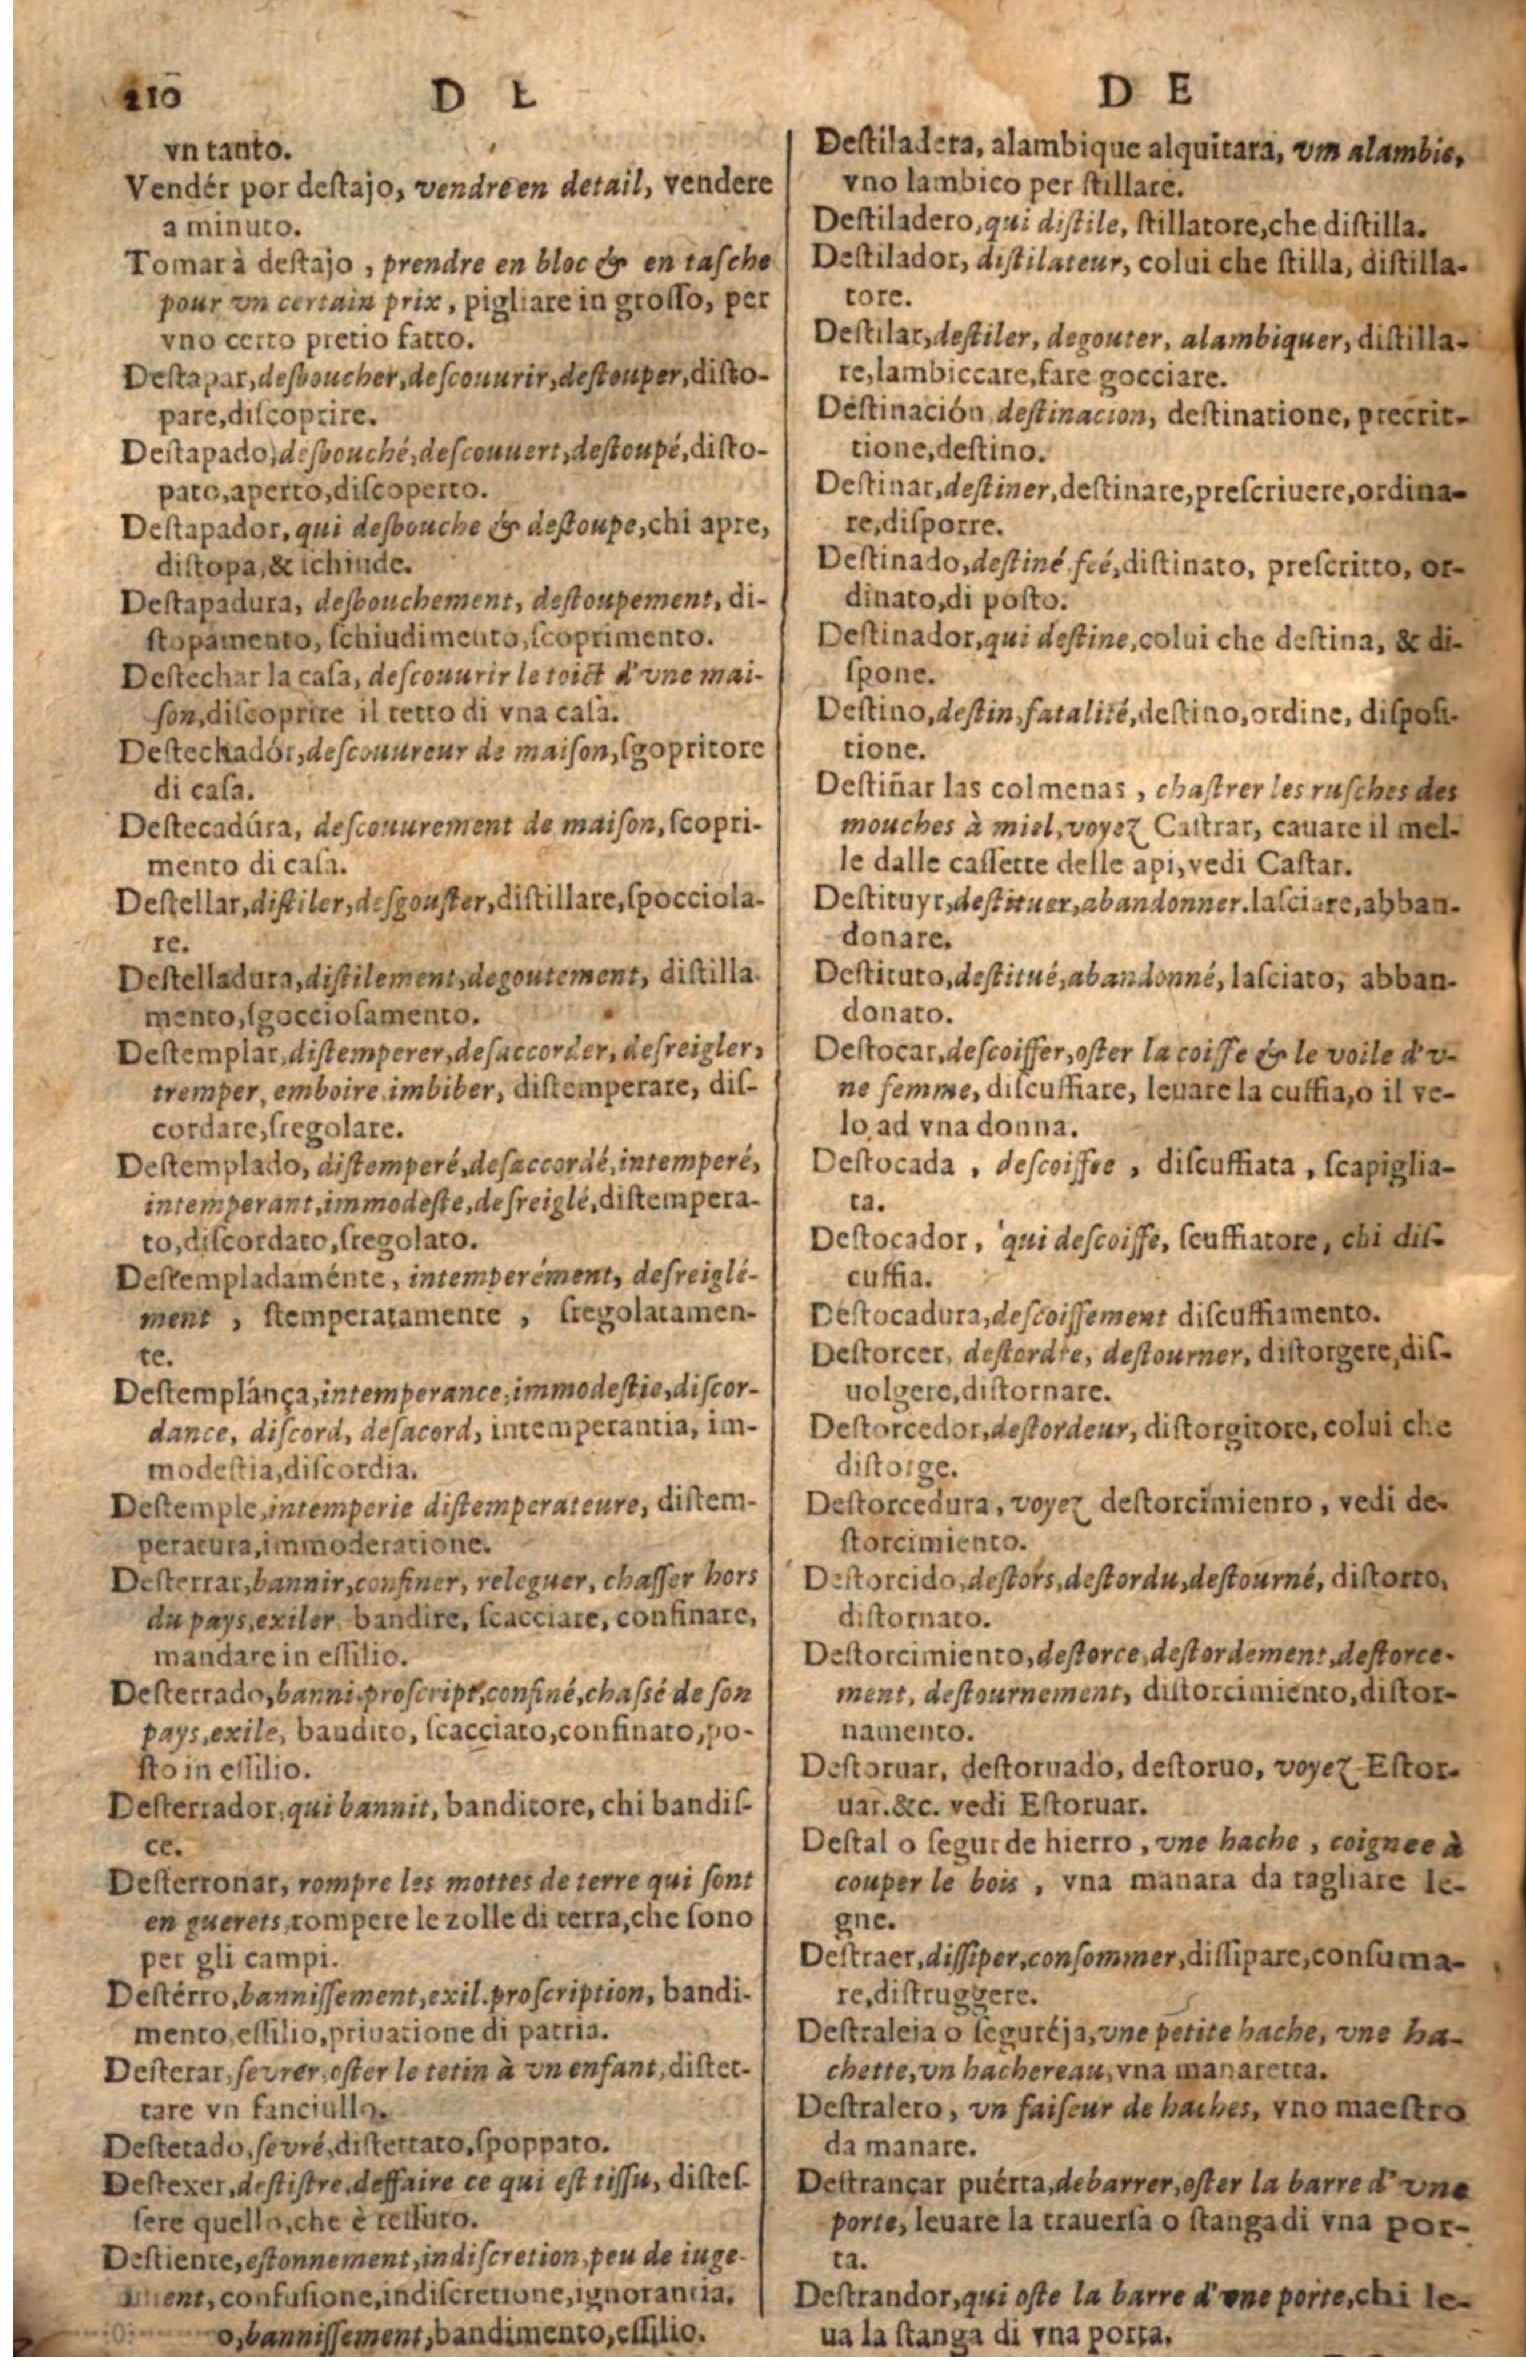 210
D E
vn tanto.
Vendér por destajo, vendre en detail, vendere
a minuto.
Tomar à destajo, prendre en bloc & en tasche
pour vn certain prix, pigliare in grosso, per
vno certo pretio fatto.
Destapar, desboucher, descouurir, destouper, disto-
pare, discoprire.
Destapado, desbouché, descouuert, destoupé, disto-
pato, aperto, discoperto.
Destapador, qui desbouche & destoupe, chi apre,
distopa, & ichiude.
Destapadura, desbouchement, destoupement, di-
stopamento, schiudimento, scoprimento.
Destechar la casa, descouurir le toict d'vne mai-
son, discoprire il tetto di vna casa.
Destechadór, descouureur de maison, sgopritore
di casa.
Destecadúra, descouurement de maison, scopri-
mento di casa.
Destellar, distiler, desgouster, distillare, spocciola-
re.
Destelladura, distilement, degoutement, distilla-
mento, sgocciosamento.
Destemplar, distemperer, desaccorder, desreigler,
tremper, emboire, imbiber, distemperare, dis-
cordare, sregolare.
Destemplado, distemperé, desaccordé, intemperé,
intemperant, immodeste, desreiglé, distempera-
to, discordato, sregolato.
Destempladaménte, intemperément, desreiglé-
ment, stemperatamente, sregolatamen-
te.
Destemplánça, intemperance, immodestie, discor-
dance, discord, desacord, intemperantia, im-
modestia, discordia.
Destemple, intemperie distemperateure, distem-
peratura, immoderatione.
Desterrar, bannir, confiner, releguer, chasser hors
du pays, exiler, bandire, scacciare, confinare,
mandare in essilio.
Desterrado, banni, proscript, confiné, chassé de son
pays, exile, baudito, scacciato, confinato, po-
sto in essilio.
Desterrador, qui bannit, banditore, chi bandis-
ce.
Desterronar, rompre les mottes de terre qui sont
en guerets, rompere le zolle di terra, che sono
per gli campi.
Destérro, bannissement, exil. proscription, bandi-
mento, essilio, priuatione di patria.
Desterar, sevrer, oster le tetin à vn enfant, distet-
tare vn fanciullo.
Destetado, sevré, distettato, spoppato.
Destexer, destistre, deffaire ce qui est tissu, distes-
sere quello, che è tessuto.
Destiente, estonnement, indiscretion, peu de iuge-
ment, confusione, indiscretione, ignorantia.
o, bannissement, bandimento, essilio.
D E
Destiladera, alambique alquitara, vm alambic,
vno lambico per stillare.
Destiladero, qui distile, stillatore, che distilla.
Destilador, distilateur, colui che stilla, distilla-
tore.
Destilar, destiler, degouter, alambiquer, distilla-
re, lambiccare, fare gocciare.
Destinación, destinacion, destinatione, precrit-
tione, destino.
Destinar, destiner, destinare, prescriuere, ordina-
re, disporre.
Destinado, destiné, feé, distinato, prescritto, or-
dinato, di posto.
Destinador, qui destine, colui che destina, & di-
spone.
Destino, destin, fatalité, destino, ordine, disposi-
tione.
Destiñar las colmenas, chastrer les rusches des
mouches à miel, voyez Castrar, cauare il mel-
le dalle cassette delle api, vedi Castar.
Destituyr, destituer, abandonner. lasciare, abban-
donare.
Destituto, destitué, abandonné, lasciato, abban-
donato.
Destocar, descoiffer, oster la coiffe & le voile d'v-
ne femme, discuffiare, leuare la cuffia, o il ve-
lo ad vna donna.
Destocada, descoiffee, discuffiata, scapiglia-
ta.
Destocador, qui descoiffe, scuffiatore, chi dis-
cuffia.
Destocadura, descoiffement discuffiamento.
Destorcer, destordre, destourner, distorgere, dis-
uolgere, distornare.
Destorcedor, destordeur, distorgitore, colui che
distorge.
Destorcedura, voyez destorcimienro, vedi de-
storcimiento.
Destorcido, destors, destordu, destourné, distorto,
distornato.
Destorcimiento, destorce, destordement, destorce-
ment, destournement, distorcimiento, distor-
namento.
Destoruar, destoruado, destoruo, voyez Estor-
uar. &c. vedi Estoruar.
Destal o segur de hierro, vne hache, coignee à
couper le bois, vna manara da tagliare le-
gne.
Destraer, dissiper, consommer, dissipare, consuma-
re, distruggere.
Destraleia o seguréja, vne petite hache, vne ha-
chette, vn hachereau, vna manaretta.
Destralero, vn faiseur de haches, vno maestro
da manare.
Destrançar puérta, debarrer, oster la barre d'vne
porte, leuare la trauersa o stanga di vna por-
ta.
Destrandor, qui oste la barre d'vne porte, chi le-
ua la stanga di vna porta.